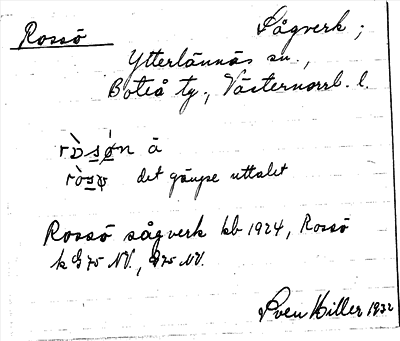 Rossö
Sågverk;
Ytterlännäs sn.,
Boteå tg., Västernorrl. l.
ròsøn å
ròsø det gängse uttalet
Rossö sågverk kb 1924, Rossö
k G 75 NV., G 75 NV.
Sven Hiller 1932